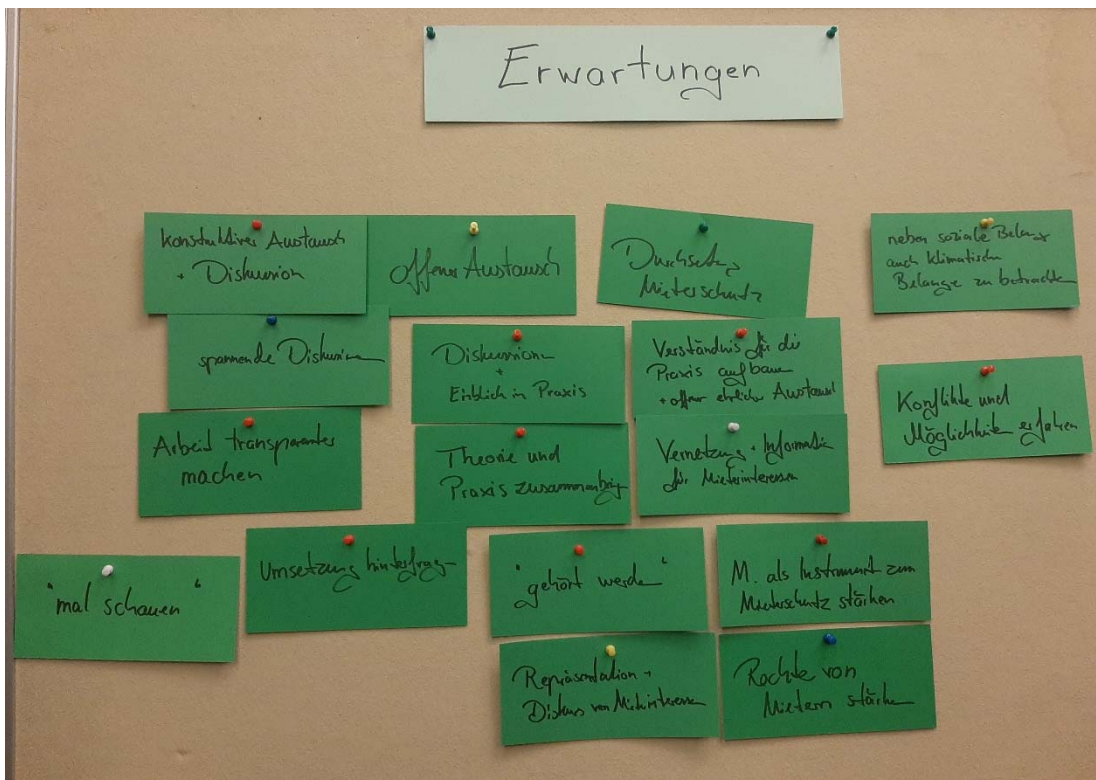 Erwartungen
konstruktiver Austausch
+ Diskussion
offener Austausch
Durchsetzung
Mieterschutz
neben soziale Belange
auch klimatische
Belange zu betrachten
spannende Diskussion
Diskussionen
+
Einblick in Praxis
Verständnis für die
Praxis aufbauen
+ offener ehrlicher Austausch
Konflikte und
Möglichkeiten erfahren
Arbeit transparenter
machen
Theorie und
Praxis zusammenbringen
Vernetzung + Information
für Mieterinteressen
"mal schauen"
Umsetzung hinterfragen
"gehört werden"
M. als Instrument zum
Mieterschutz stärken
Repräsentation +
Diskurs von Mieterinteressen
Rechte von
Mietern stärken